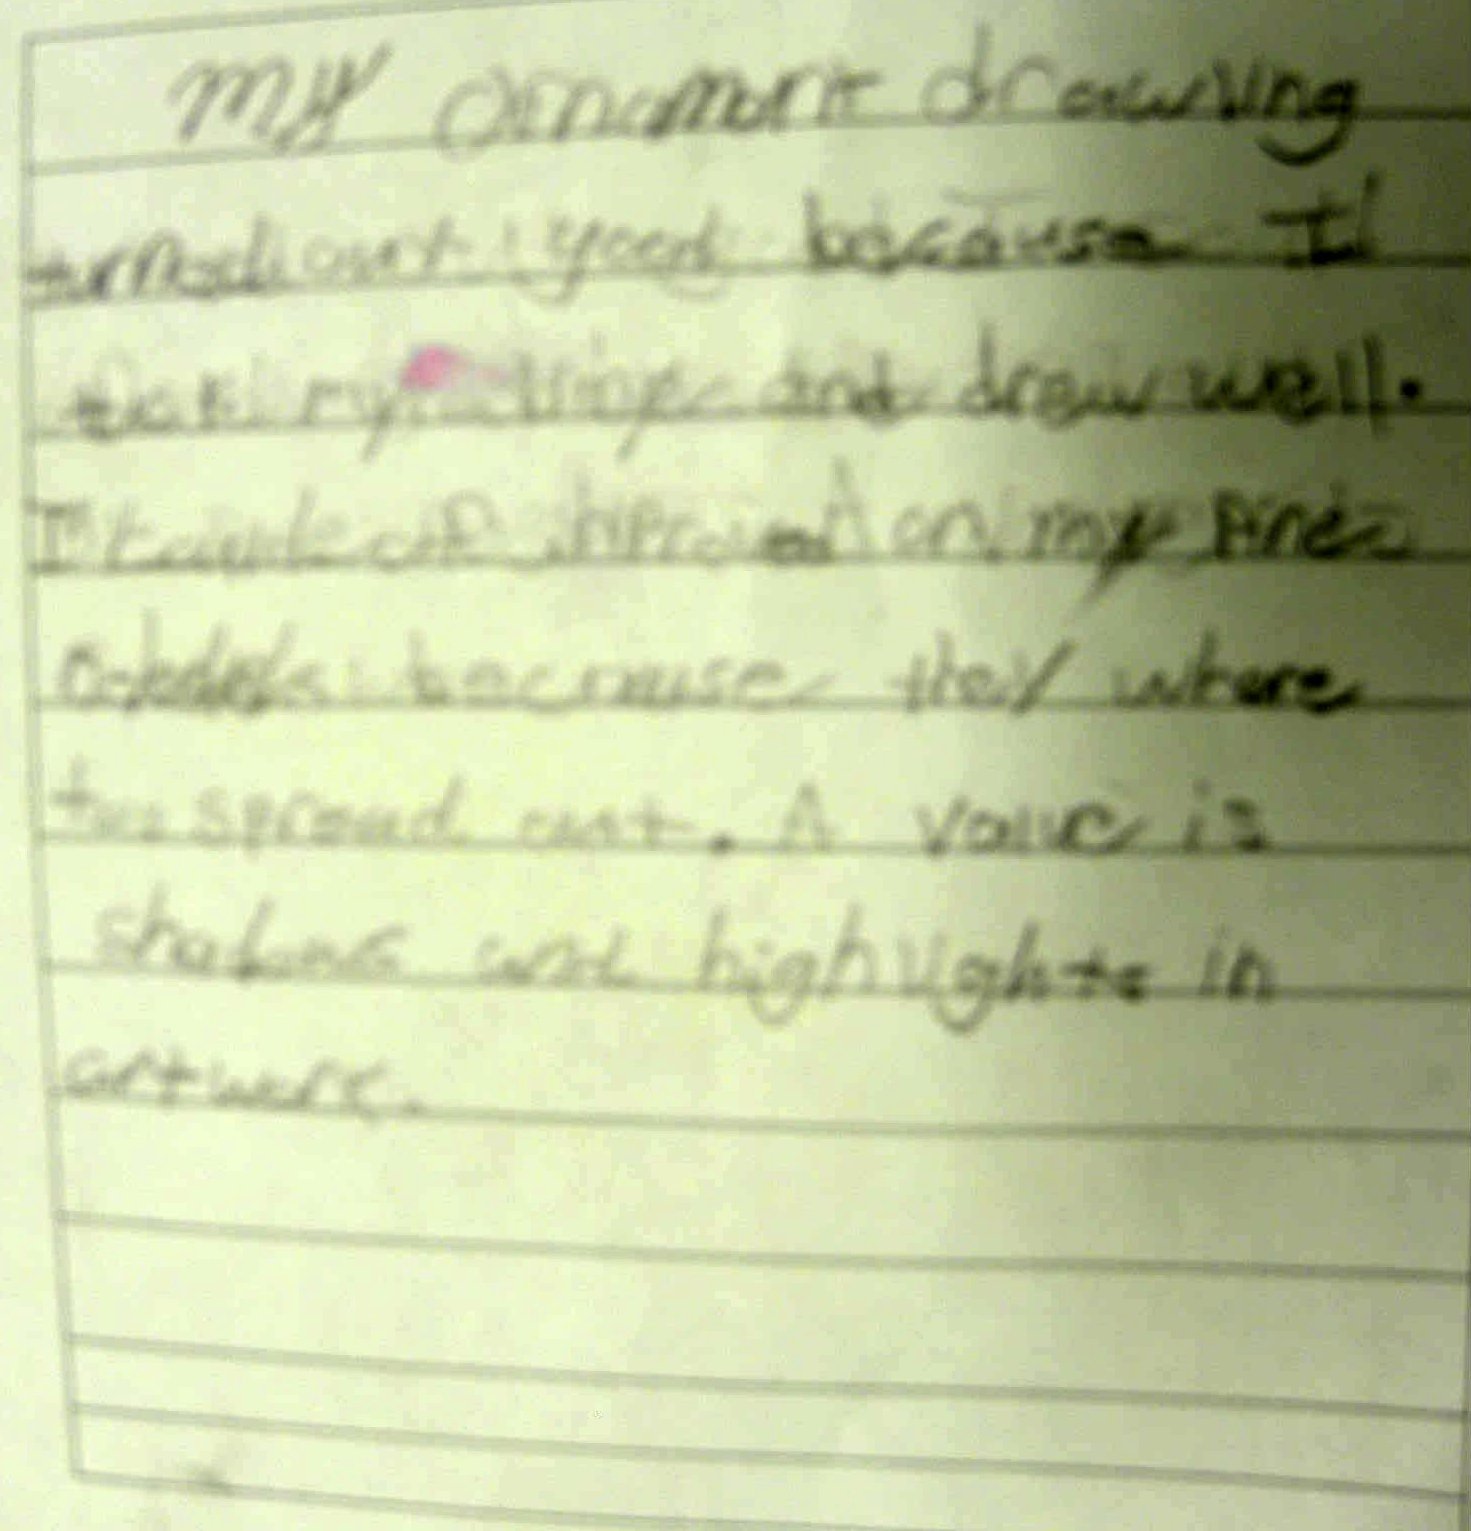 My ornament drawing
turned out good because I
took my time and drew well.
I could of improved on my pine
because they where
too spread out. A value is
shadows and highlights in
artwork.